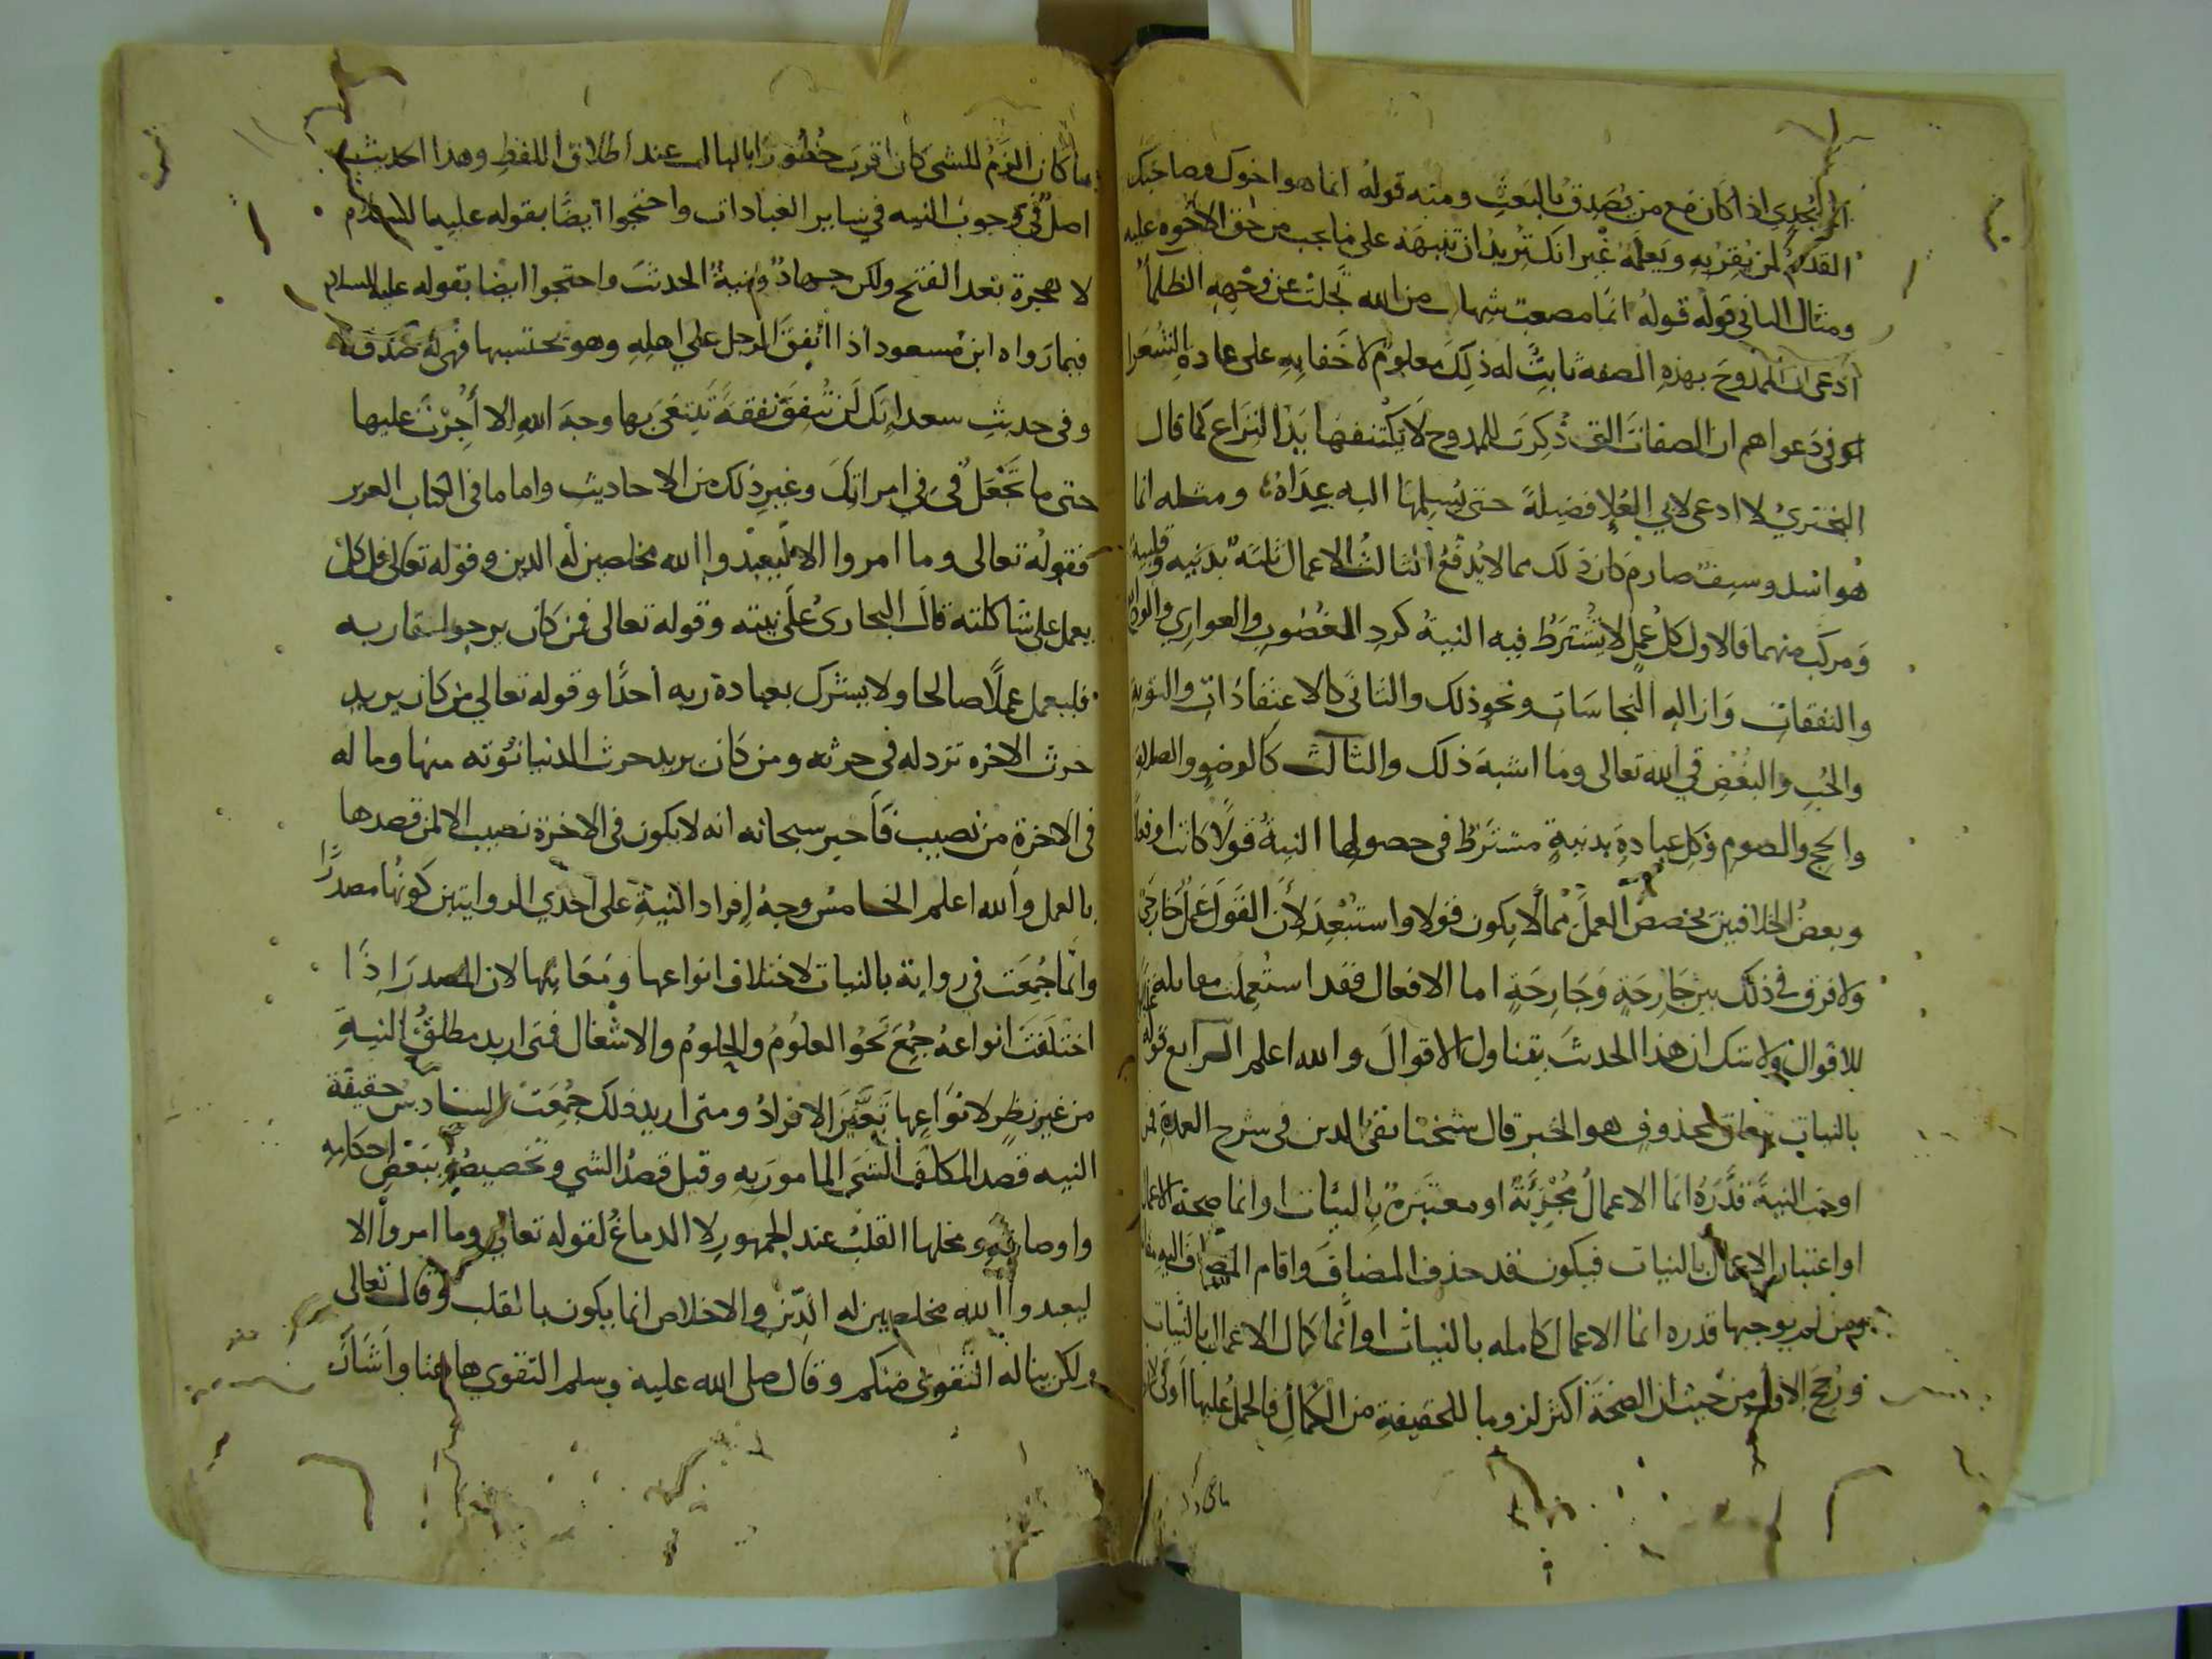 انما يجدي اذا كان مع من يصدق بالبعث ومنه قوله انما هو اخوك وصاحبك
القديم لمن يقر به ويعلمه غير انك تريد ان تنبهه على ما يجب من حق الاخوة عليه
ومثال الثاني قوله قوله انما مصعب شهاب من الله تجلت عن وجهه الظلماء
ادعى ان الممدوح بهذه الصفة ثابت له ذلك معلوم لا خفا به على عادة الشعرا
في دعواهم ان الصفات التي ذكرت للممدوح لا يكتنفها يد النزاع كما قال
البختري لا ادعى لابي العلا فضيلة حتى يسلمها اليه عداه ومثله انما
هو اسد وسيف صارم كان ذلك مما لا يدفع الثالث الاعمال ثلثة بدنيه وقلبية
ومركب منهما فالاول كل عمل لا يشترط فيه النية كرد الغصوب والعواري
والنفقات وازاله النجاسات ونحو ذلك والثاني كالاعتقادات والتوبة
والحب والبغض في الله تعالى وما اشبه ذلك والثالث كالوضو والصلاة
والحج والصوم وكل عبادة بدنية مشترط في حصولها النية قولا كانت او فعلا
وبعض الخلافيين يخصص العمل مما لا يكون قولا واستبعد لان القول عمل جارحي
ولا فرق في ذلك بين جارحة وجارحة اما الافعال فقد استعملت مقابلة
للاقوال ولا شك ان هذا الحدث يتناول الاقوال والله اعلم الرابع قوله
بالنيات يتعلق بمحذوف هو الخبر قال شيخنا تقي الدين في شرح العمدة فمن
اوجب النية قدره انما الاعمال مجزئة او معتبرة بالنيات او انما صحة الاعمال
او اعتبار الاعمال بالنيات فيكون قد حذف المضاف واقام المضاف اليه
ومن لم يوجبها قدره انما الاعمال كامله بالنيات او انما كمال الاعمال بالنيات
ورجح الاول من حيث ان الصحة اكثر لزوما للحقيقة من الكمال فالحمل عليها اولى
ما كان الزم للشي كان اقرب خطورا بالبال عند اطلاق اللفظ وهذا الحديث
اصل في وجوب النيه في ساير العبادات واحتجوا ايضا بقوله عليه السلام
لا هجرة بعد الفتح ولكن جهاد ونية الحدث واحتجوا ايضا بقوله عليه السلام
فيما رواه ابن مسعود اذا انفق الرجل على اهله وهو يحتسبها فهي له صدقة
وفي حديث سعد انك لن تنفق نفقة تبتغي بها وجه الله الا أجرت عليها
حتى ما تجعل في في امراتك وغير ذلك من الاحاديث واما ما في الكتاب العزيز
فقوله تعالى وما امروا الا ليعبدوا الله مخلصين له الدين وقوله تعالى قل كل
يعمل على شاكلته قال البخاري على نيته وقوله تعالى فمن كان يرجوا لقا ربه
فليعمل عملا صالحا ولا يشرك بعبادة ربه احدا وقوله تعالي من كان يريد
حرث الاخره نزد له في حرثه ومن كان يريد حرث الدنيا نؤته منها وما له
في الاخرة من نصيب فاخبر سبحانه انه لا يكون في الاخرة نصيب الا لمن قصدها
بالعمل والله اعلم الخامس وجه افراد النية على احدي الروايتين كونها مصدرا
وانما جمعت في رواية بالنيات لاختلاف انواعها ومعانيها لان المصدر اذا
اختلفت انواعه جمع نحو العلوم والحلوم والاشغال فمتى اريد مطلق النية
من غير نظر لانواعها تعين الافراد ومتى اريد ذلك جمعت السادس حقيقة
النيه قصد المكلف الشي المامور به وقيل قصد الشي وتخصيصه ببعض احكامه
واوصافه ومحلها القلب عند الجمهور لا الدماغ لقوله تعالى وما امروا الا
ليعبدوا الله مخلصين له الدين والاخلاص انما يكون بالقلب وقال تعالى
ولكن يناله التقوى منكم وقال صلى الله عليه وسلم التقوي هاهنا واشار